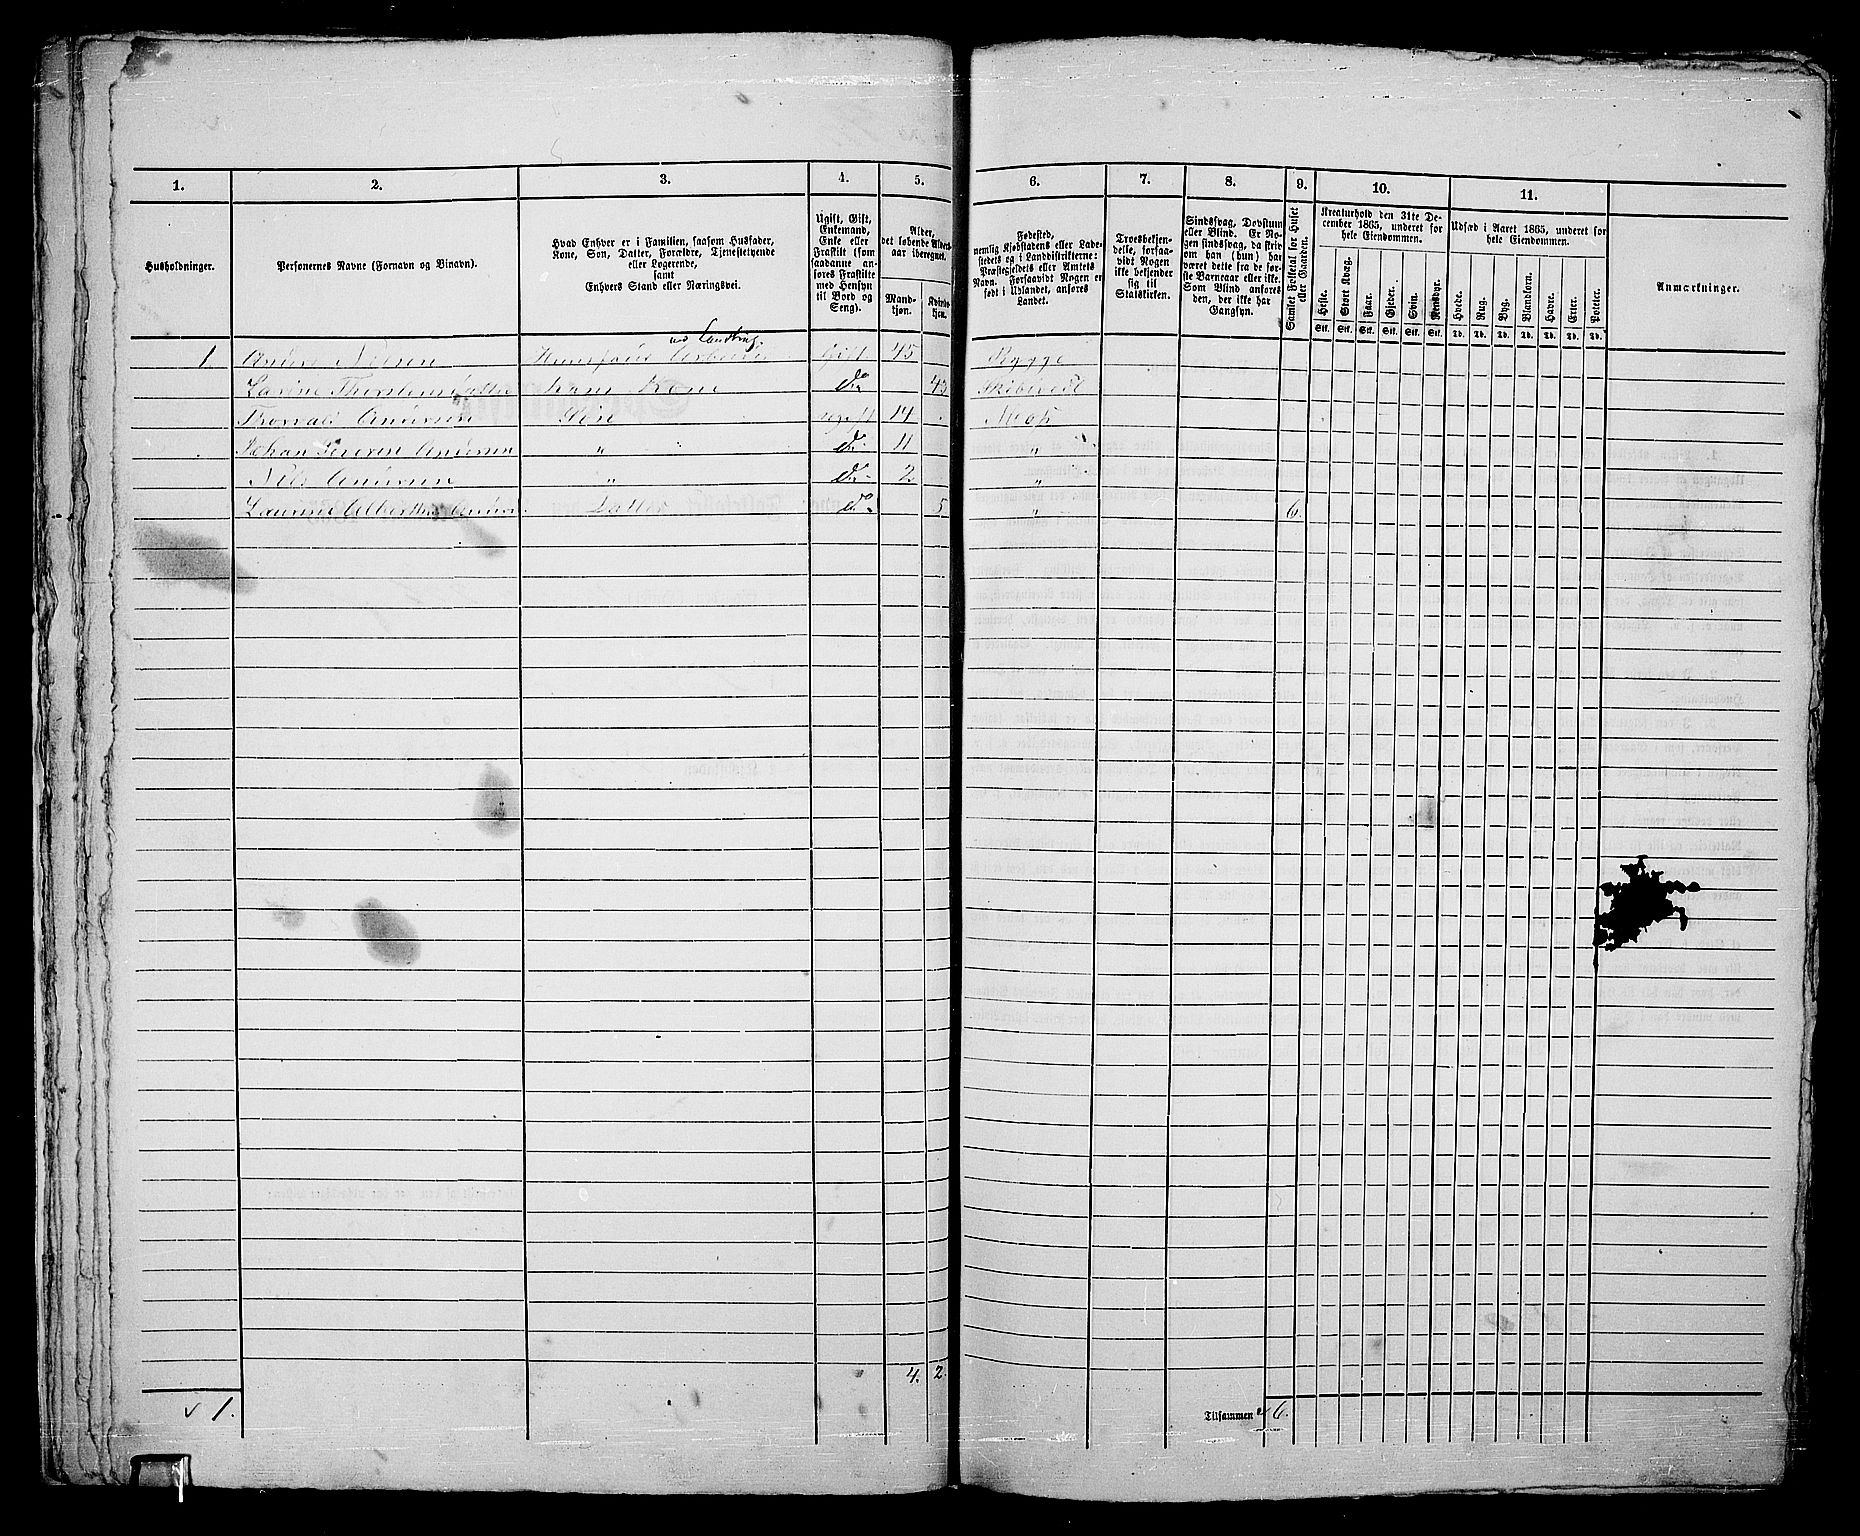 1. 2. 3. 4. 5. 6. 7. 8. 9. 10. 11.
Husholdninger.
Personernes Navne (Fornavn og Binavn).
Hvad Enhver er i Familien, saasom Husfader,
Kone, Søn, Datter, Forældre, Tjenestetyende
eller Logerende,
samt
Enhvers Stand eller Næringsvei.
Ugift, Gift,
Enkemand,
Enke eller
Fraskilt (som
saadanne an-
føres Fraskilte
med Hensyn
til Bord og
Seng).
Alder,
det løbende Alders-
aar iberegnet.
Mand-
kjøn.
Kvinde-
kjøn.
Fødested,
nemlig Kjøbstadens eller Lade-
stedets og i Landdistrikterne:
Præstegjeldets eller Amtets
Navn. Forsaavidt Nogen er
født i Udlandet, anføres
Landet.
Troesbekjen-
delse, forsaa-
vidt Nogen
ikke bekjender
sig til
Statskirken.
Sindssvag, Døvstum
eller Blind. Er No-
gen sindssvag, da skriv
om han (hun) har
været dette fra de før-
ste Barneaar eller ikke.
Som Blind anføres
den, der ikke har
Gangsyn.
Samlet Folketal for Huset
eller Gaarden.
Kreaturhold den 31te De-
cember 1865, underet for
hele Eiendommen.
Heste. Stort Kvæg. Faar. Gjeder. Svin. Rensdyr.
Stk. Stk. Stk. Stk. Stk. Stk.
Udsæd i Aaret 1865, underet for
hele Eiendommen.
Hvede. Rug. Byg. Blandkorn. Havre. Erter. Poteter.
Td. Td. Td. Td. Td. Td. Td.
Anmærkninger.
1. Anders Nilsen Huusfader Arbeider Gift 45 Rygge
Hans Kone do 43 Skibtvedt
Thorvald Andersen Søn ugift 14 Moss
Johan Andersen " do 11 "
Nils Andersen " do 2 "
Andersen Datter do 5 " 6.
4. 2.
v 1.
Tilsammen 6.